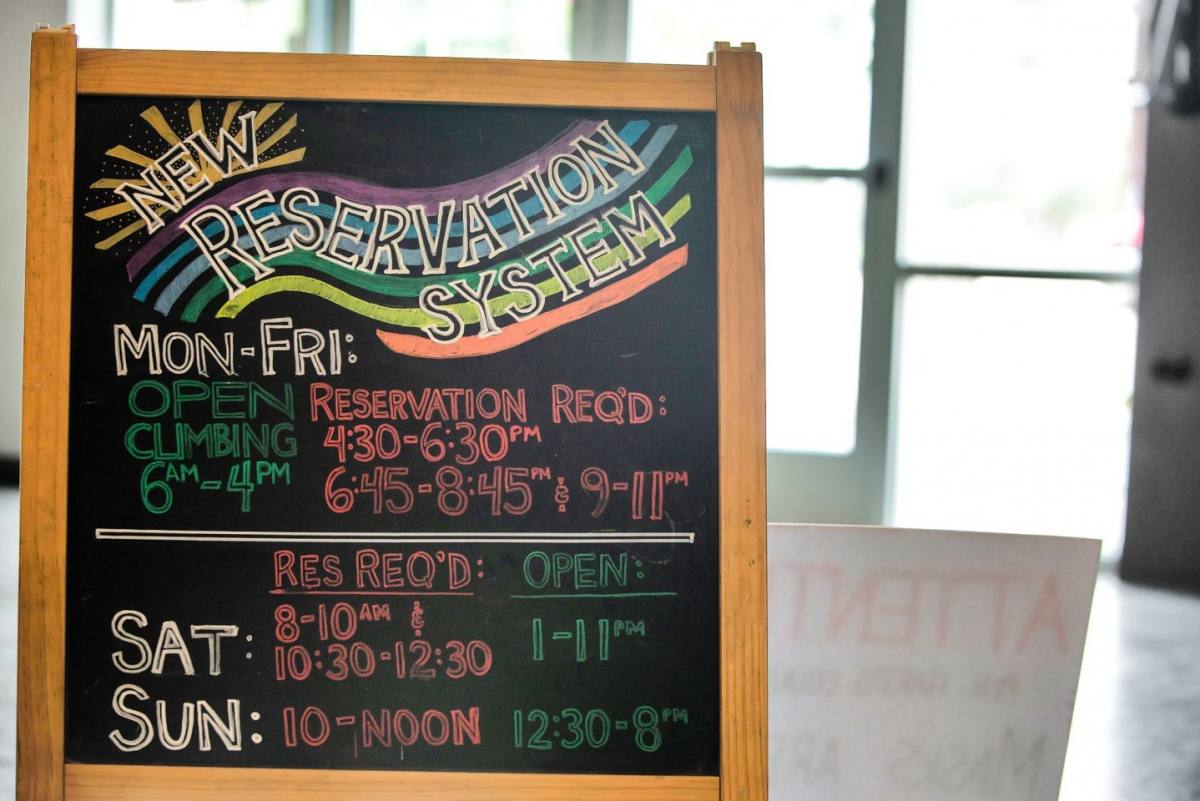 NEW
RESERVATION
SYSTEM
MON-FRI:
OPEN
CLIMBING
6AM-4PM
RESERVATION REQ'D:
4:30-6:30PM
6:45-8:45PM & 9-11PM
RES REQ'D:
OPEN:
SAT:
8-10AM &
10:30-12:30
1-11PM
SUN:
10-NOON
12:30-8PM